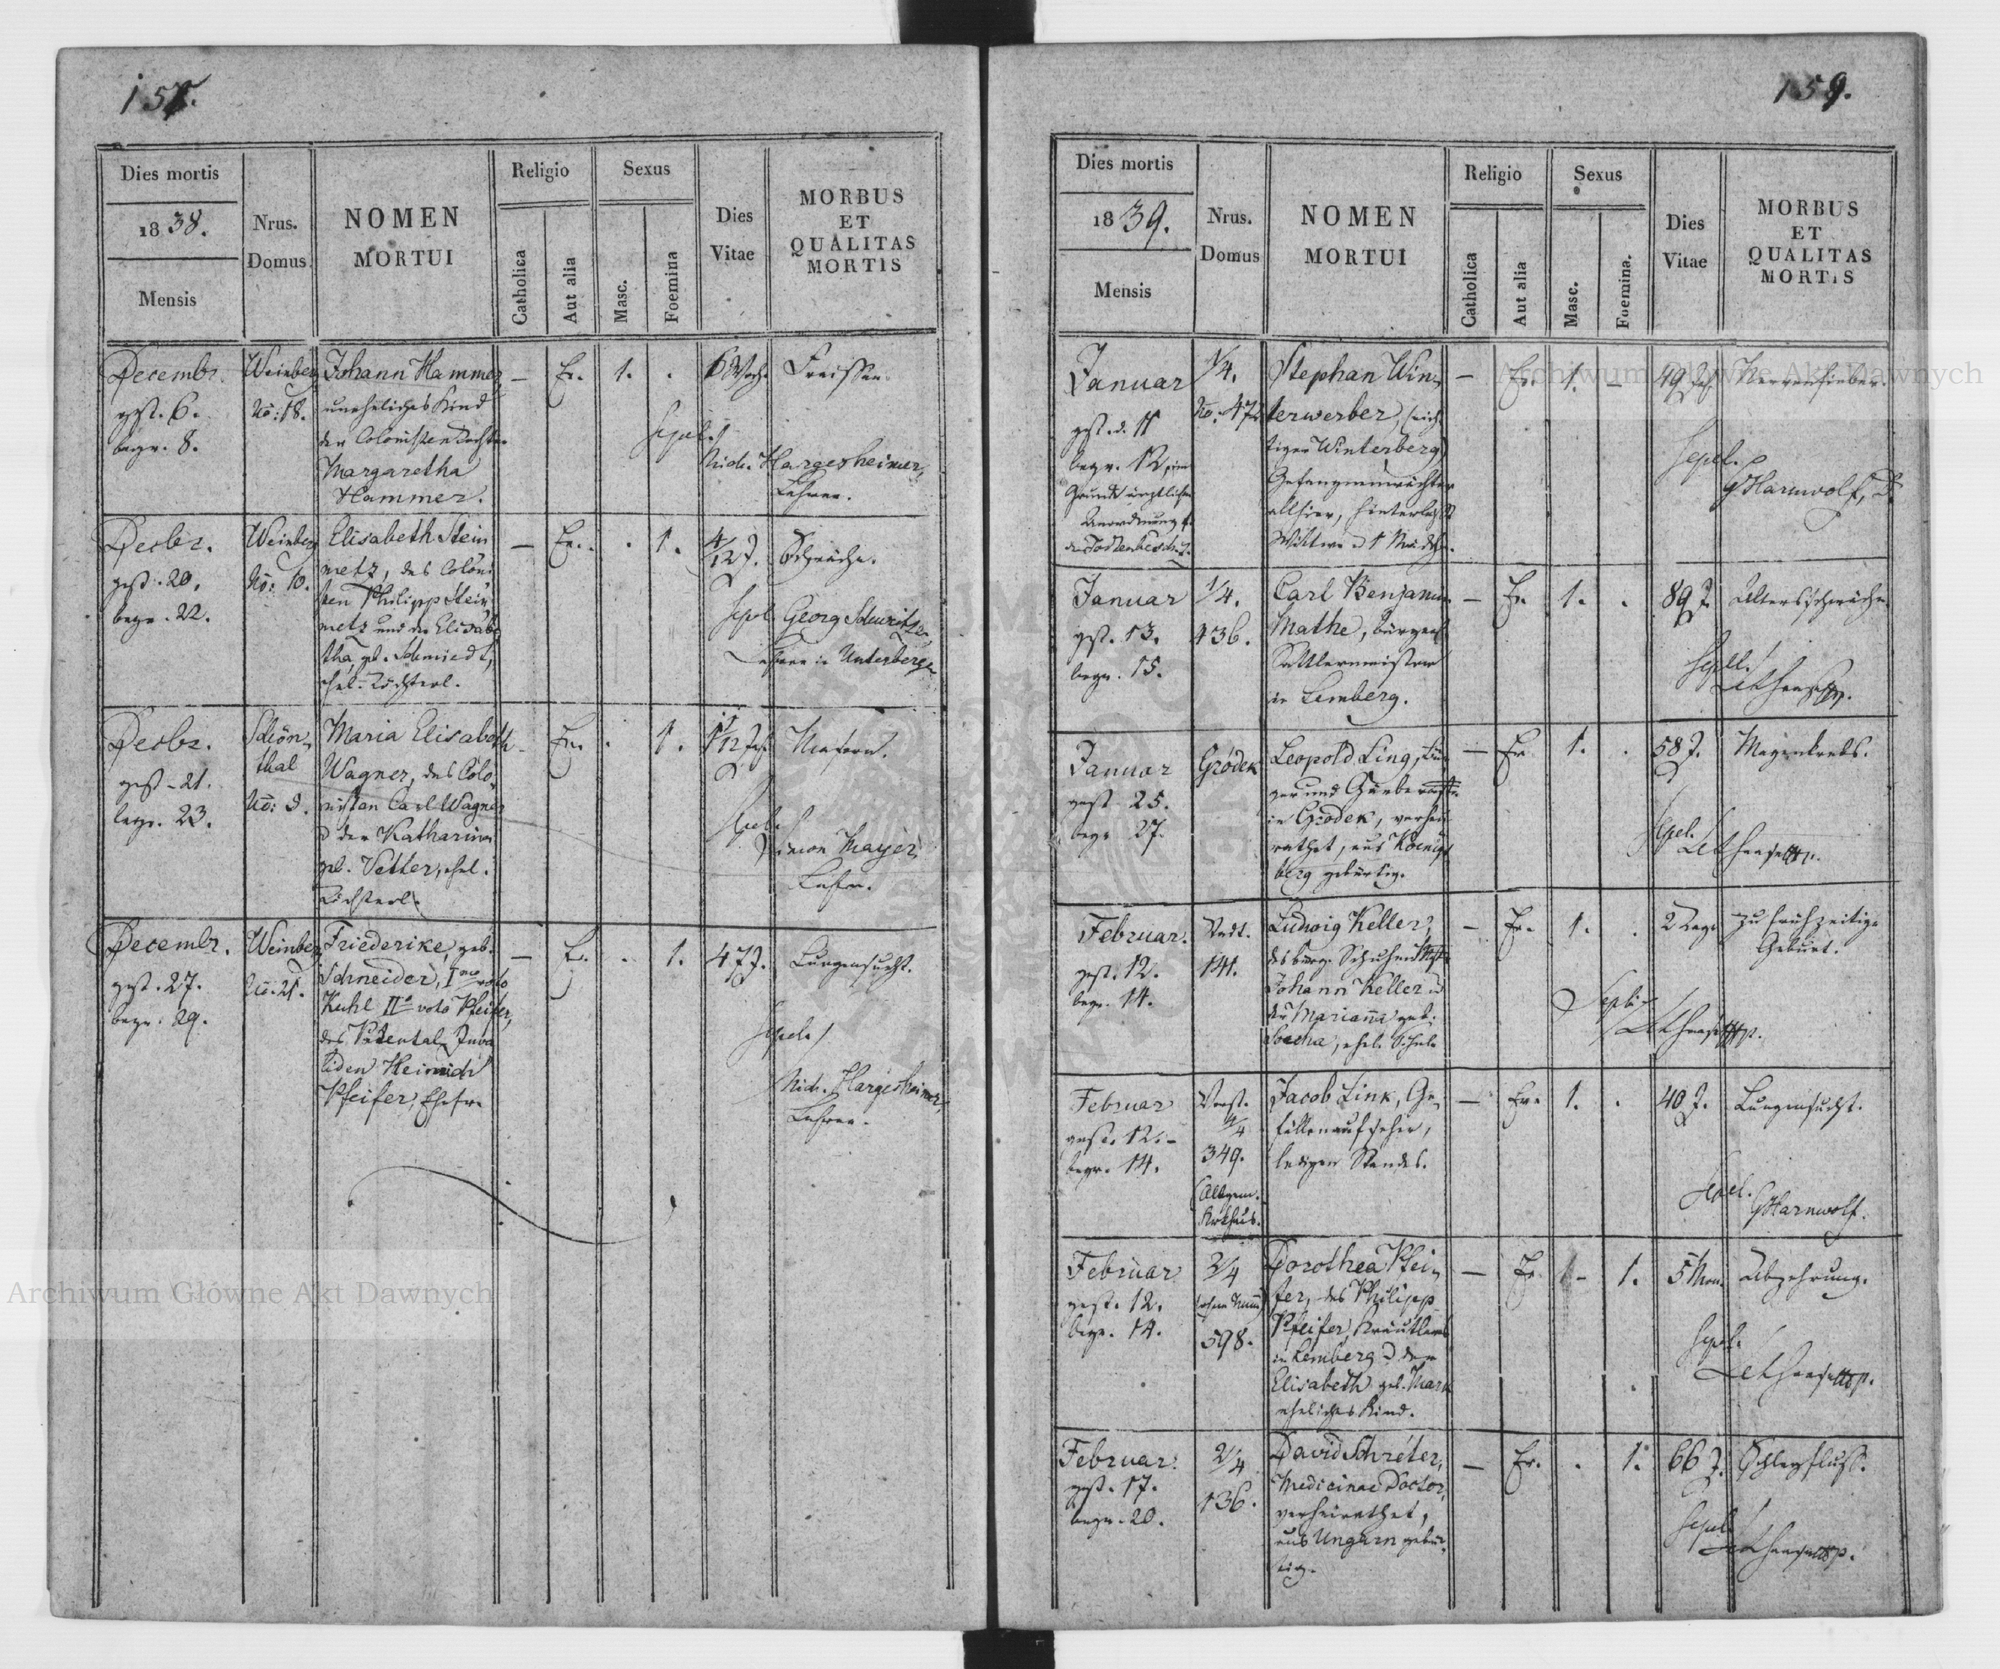 157.
Dies mortis
1838.
Mensis
Nrus.
Domus
NOMEN
MORTUI
Religio
Catholica
Aut alia
Sexus
Masc.
Foemina
Dies
Vitae
MORBUS
ET
QUALITAS
MORTIS
Decembr.
gest. 6.
begr. 8.
Weinberg
No: 18.
Johann Hammer,
uneheliches Kind
der Colonisten Tochter
Margaretha
Hammer.
—
Ev.
1.
.
6 Woch.
Fraissen.
Sepel.
Nich. Hargesheimer,
Lehrer.
Decbr.
gest. 20.
begr. 22.
Weinberg
No: 10.
Elisabeth Stein
metz, des Coloni
sten Philipp Stein
metz und der Elisabe
tha, geb. Schmiedt,
ehel. Töchterl.
—
Ev.
.
1.
4/12 J.
Schwäche.
Sepel. Georg Schweitzer
Lehrer in Unterbergen
Decbr.
gest. 21.
begr. 23.
Schön
thal
No: 9.
Maria Elisabeth
Wagner, des Colo
nisten Carl Wagner
u der Katharina
geb. Vetter, ehel.
Töchterl.
Ev.
.
1.
Masern.
Sepel.
Simon Mayer,
Lehrer.
Decembr.
gest. 27.
begr. 29.
Weinberg
No: 21.
Friederike, geb.
Schneider, I mo voto
Kuhl II o voto Pfeifer,
des Patental Inva
liden Heinrich
Pfeifer, Ehefr.
—
Ev.
.
1.
47 J.
Lungensucht.
Sepel.
Nich. Hargesheimer,
Lehrer.
159.
Dies mortis
1839.
Mensis
Nrus.
Domus
NOMEN
MORTUI
Religio
Catholica
Aut alia
Sexus
Masc.
Foemina.
Dies
Vitae
MORBUS
ET
QUALITAS
MORTIS
Januar
gest. d. 11
begr. 12, im
Grunde ärztlicher
Anordnung
1/4.
No. 472
Stephan Win
terwerber, (rich
tiger Winterberg)
Gefangenwächter
allhier, hinterläßt
Wittwe u 1 Mädch.
—
Ev.
1.
—
49 Jah.
Nervenfieber.
Sepel.
GHarnwolf,
Januar
gest. 13.
begr. 15.
1/4.
436.
Carl Benjamin
Mathe, bürgerl
Sattlermeister
in Lemberg.
—
Ev.
1.
.
89 J.
Altersschwäche
Sepel.
Januar
gest. 25.
begr. 27.
Gródek
Leopold Ling, Bür
ger und Gärbermstr.
in Grodek, verhei
rathet, aus Koenigs
berg gebürtig.
—
Ev.
1.
.
58 J.
Magenkrebs.
Sepel.
Februar.
gest. 12.
begr. 14.
141.
Ludwig Keller,
des bürg. Schuhm Mstr.
Johann Keller u
der Marianna geb.
Socha, ehel. Söhnl.
—
Ev.
1.
.
2 Tage
zu frühzeitige
Geburt.
Sepel.
Februar
gest. 12.
begr. 14.
Vorst.
4/4
349.
(Allgem.
Krkhaus.
Jacob Link, Ge
fällenaufseher,
ledigen Standes.
—
Ev.
1.
.
40 J.
Lungensucht.
Sepel.
GHarnwolf.
Februar
gest. 12.
begr. 14.
2/4
598.
Dorothea Pfei
fer, des Philipp
Pfeifer, Kräutlers
in Lemberg u der
Elisabeth geb. Mark
eheliches Kind.
—
Ev.
1.
5 Mon.
Abzehrung.
Sepel.
Februar
gest. 17.
begr. 20.
2/4
136.
David Schréter,
Medicinae Doctor,
verheirathet,
aus Ungarn gebür
tig.
—
Ev.
.
1.
66 J.
Schlagfluß.
Sepel.
Archiwum Główne Akt Dawnych
Archiwum Główne Akt Dawnych